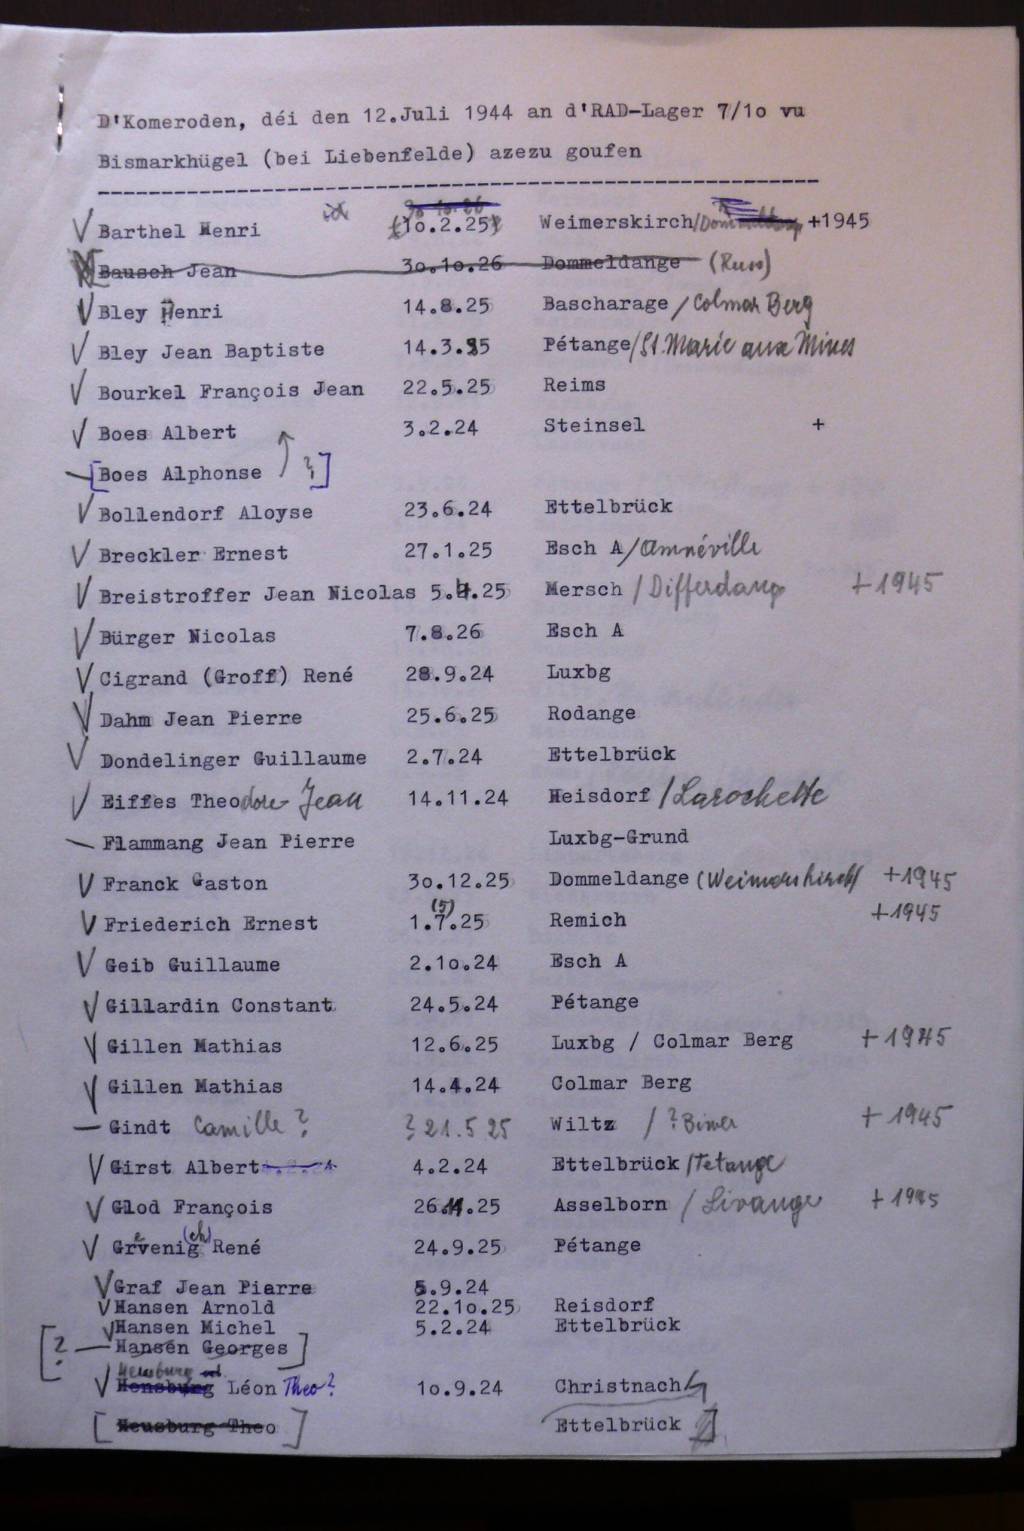 D'Komeroden, déi den 12.Juli 1944 an d'RAD-Lager 7/1o vu
Bismarkhügel (bei Liebenfelde) azezu goufen
--------------------------------------------------
V Barthel Henri 1o.2.25 Weimerskirch/ +1945
Bausch Jean 3o.1o.26 Dommeldange (Russ)
V Bley Henri 14.8.25 Bascharage / Colmar Berg
V Bley Jean Baptiste 14.3.25 Pétange/St. Marie aux Mines
V Bourkel François Jean 22.5.25 Reims
V Boes Albert 3.2.24 Steinsel +
— [Boes Alphonse ?]
V Bollendorf Aloyse 23.6.24 Ettelbrück
V Breckler Ernest 27.1.25 Esch A/Amnéville
V Breistroffer Jean Nicolas 5.4.25 Mersch /Differdang +1945
V Bürger Nicolas 7.8.26 Esch A
V Cigrand (Groff) René 28.9.24 Luxbg
V Dahm Jean Pierre 25.6.25 Rodange
V Dondelinger Guillaume 2.7.24 Ettelbrück
V Eiffes Theodore Jean 14.11.24 Heisdorf /Larochette
— Flammang Jean Pierre Luxbg-Grund
V Franck Gaston 3o.12.25 Dommeldange (Weimerskirch) +1945
V Friederich Ernest 1.7.(5)25 Remich +1945
V Geib Guillaume 2.1o.24 Esch A
V Gillardin Constant 24.5.24 Pétange
V Gillen Mathias 12.6.25 Luxbg / Colmar Berg +1945
V Gillen Mathias 14.4.24 Colmar Berg
— Gindt Camille ? ? 21.5 25 Wiltz / ? +1945
V Girst Albert 4.2.24 Ettelbrück /Tetange
V Glod François 26.11.25 Asselborn / Livange +1945
V Grevenig(ch) René 24.9.25 Pétange
V Graf Jean Pierre 5.9.24
V Hansen Arnold 22.1o.25 Reisdorf
V Hansen Michel 5.2.24 Ettelbrück
[? — Hansen Georges]
Heusburg
V Hensburg Léon Theo? 1o.9.24 Christnach
[Heusburg Theo] Ettelbrück ]